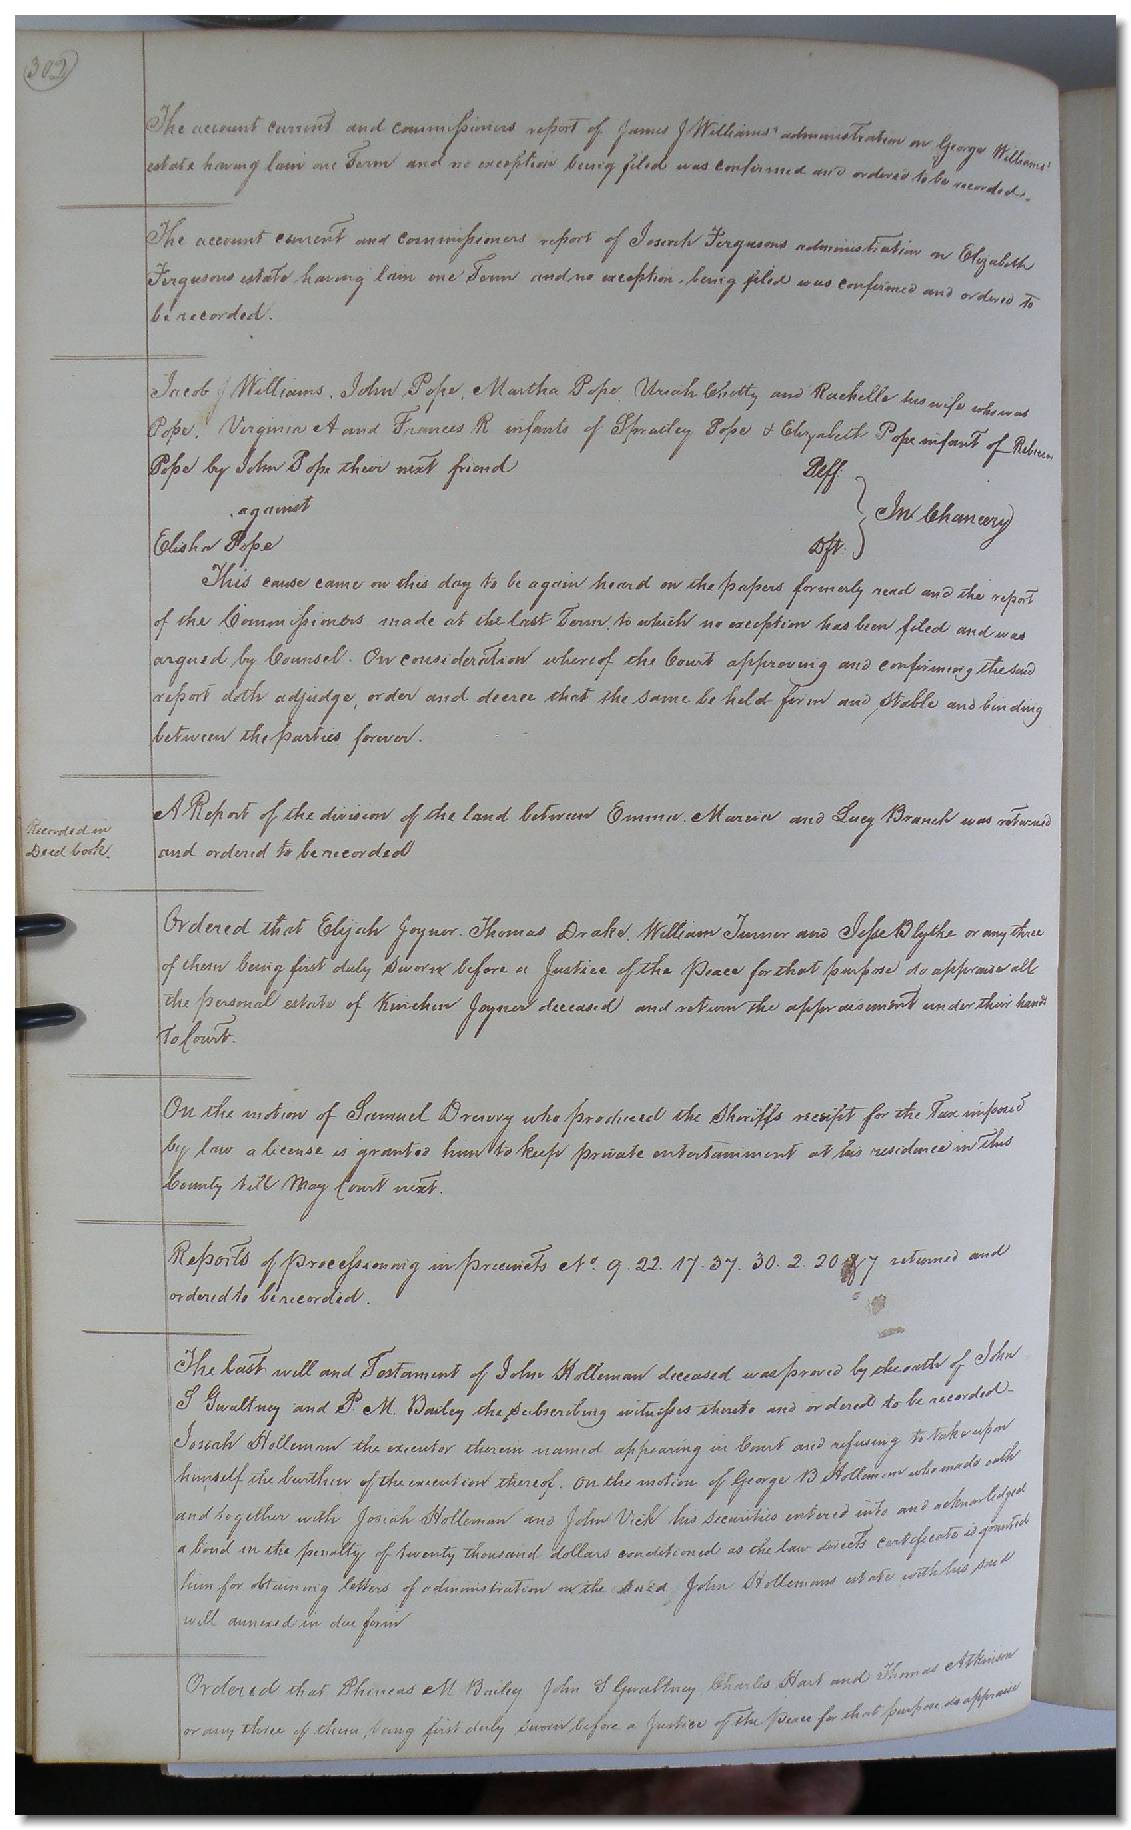 302
The account current and commissioners report of James J Williams' administration on George Williams'
estate having lain one Term and no exception being filed was confirmed and ordered to be recorded.
The account current and commissioners report of Josiah Fergusons administration on Elizabeth
Fergusons estate having lain one Term and no exception being filed was confirmed and ordered to
be recorded.
Jacob J Williams, John Pope, Martha Pope, Uriah Chitty and Rachelle his wife who was
Pope, Virginia A and Frances R infants of Spratley Pope & Elizabeth Pope infant of Rebecca
Pope by John Pope their next friend Plff.
against In Chancery
Elisha Pope Dft.
This cause came on this day to be again heard on the papers formerly read and the report
of the Commissioners made at the last Term, to which no exception has been filed and was
argued by Counsel. On consideration whereof the Court approving and confirming the said
report doth adjudge, order and decree that the same be held firm and stable and binding
between the parties forever.
Recorded in
Deed book.
A Report of the division of the land between Emma, Marcia and Lucy Branch was returned
and ordered to be recorded
Ordered that Elijah Joyner, Thomas Drake, William Turner and Jesse Blythe or any three
of them being first duly sworn before a Justice of the Peace for that purpose do appraise all
the personal estate of Kinchen Joyner deceased and return the appraisement under their hands
to Court.
On the motion of Samuel Drewry who produced the Sheriffs receipt for the Tax imposed
by law a license is granted him to keep private entertainment at his residence in this
County till May Court next.
Reports of processioning in precincts No. 9. 22. 17. 37. 30. 2. 20 7 returned and
ordered to be recorded.
The last will and Testament of John Holleman deceased was proved by the oath of John
S Gwaltney and P. M. Bailey the subscribing witnesses thereto and ordered to be recorded.
Josiah Holleman the executor therein named appearing in Court and refusing to take upon
himself the burthen of the execution thereof. On the motion of George B Holleman who made oath
and together with Josiah Holleman and John Vick his securities entered into and acknowledged
a bond in the penalty of twenty thousand dollars conditioned as the law directs certificate is granted
him for obtaining letters of administration on the said John Hollemans estate with his said
will annexed in due form
Ordered that Phineas M Bailey John S Gwaltney Charles Hart and Thomas Atkinson
or any three of them, being first duly sworn before a Justice of the Peace for that purpose do appraise